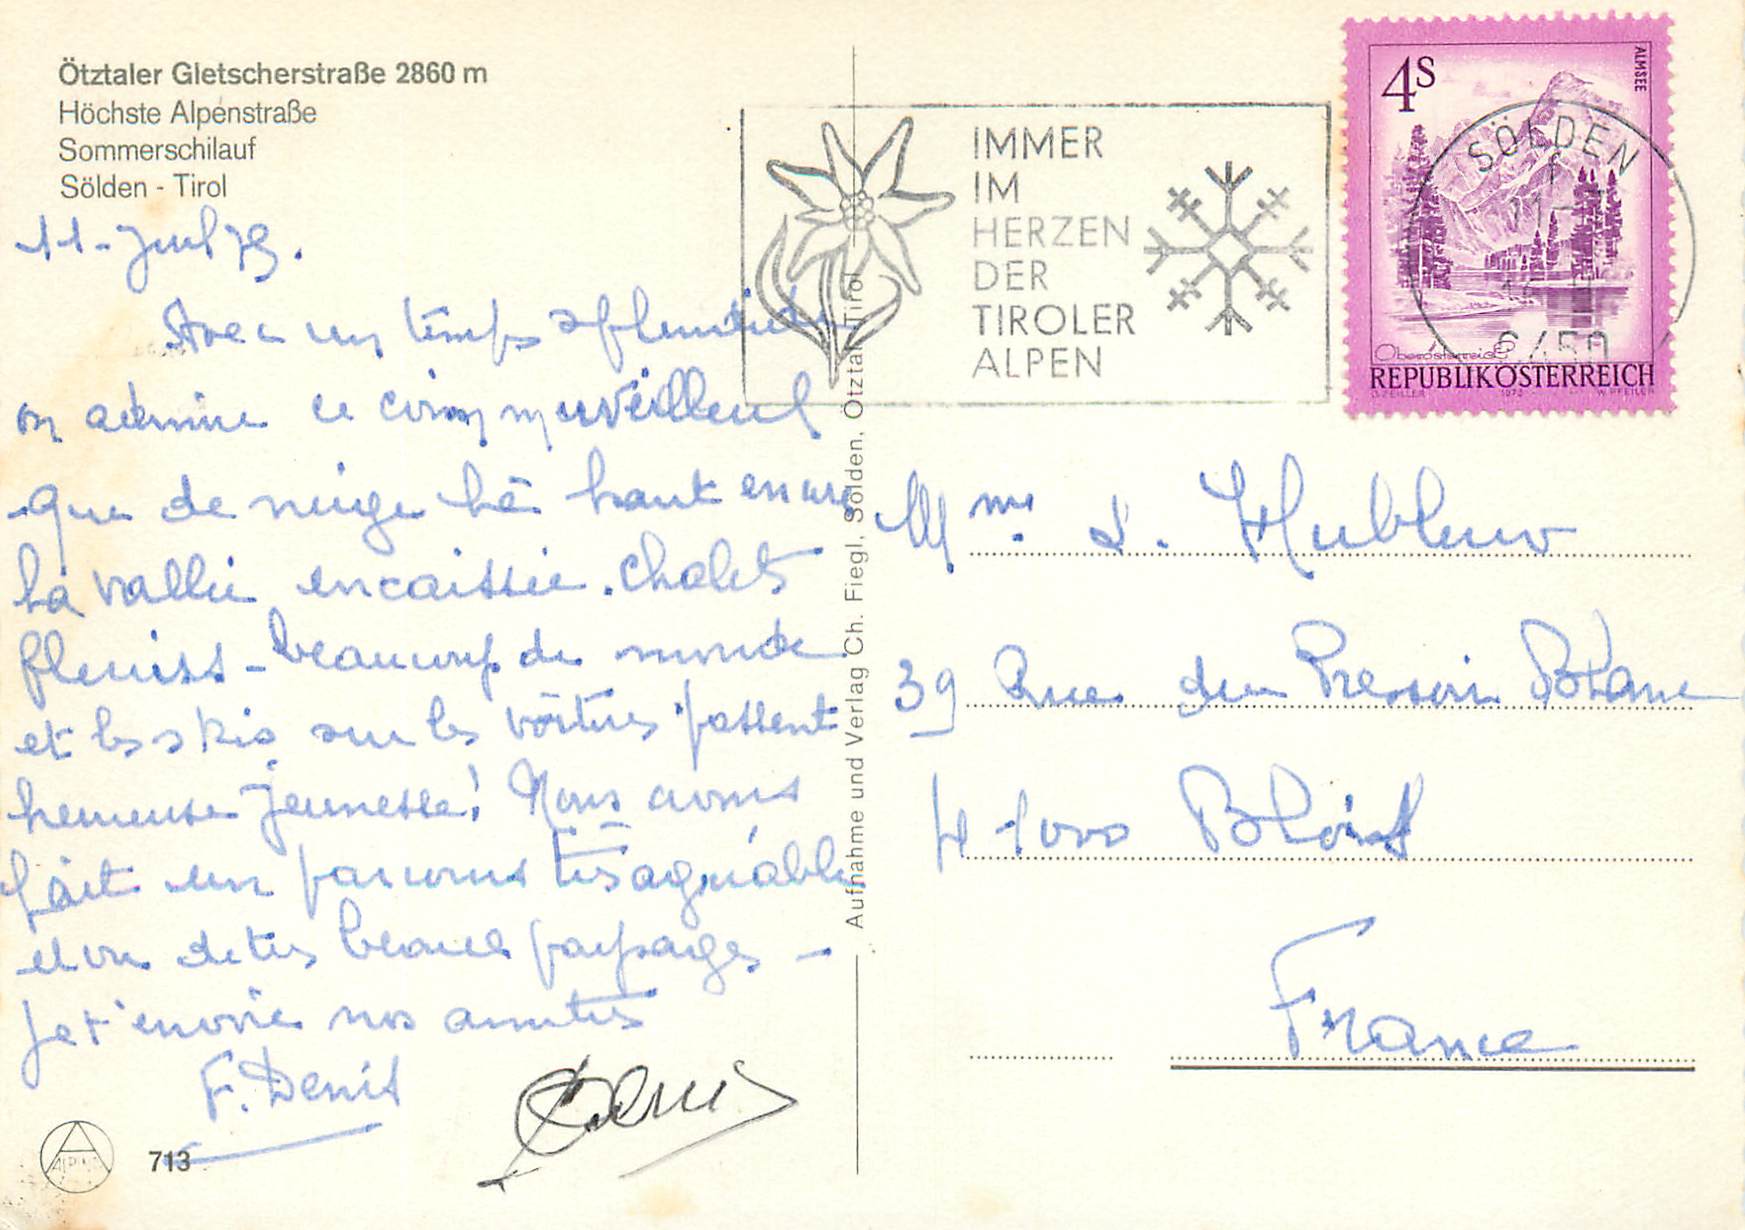 Ötztaler Gletscherstraße 2860 m
Höchste Alpenstraße
Sommerschilauf
Sölden - Tirol
11 - Juil 79.
Avec un temps splendide
on admire ce coin merveilleux
que de neige là haut
la vallée encaissée. Chalets
fleuris - beaucoup de monde
et les skis sur les voitures passent
heureuse jeunesse! Nous avons
fait un parcours très agréable
et vu de très beaux paysages -
Je t'envoie nos amitiés
F. Denis
Denis
ALPINA
713
Aufnahme und Verlag Ch. Fiegl, Sölden, Ötztal, Tirol
IMMER
IM
HERZEN
DER
TIROLER
ALPEN
4S
ALMSEE
SÖLDEN
11-
6450
Oberösterreich
REPUBLIK ÖSTERREICH
O. ZEILLER 1973 W. PFEILER
Mme L.
39 Rue du Pressoir Blanc
41000 Blois
France